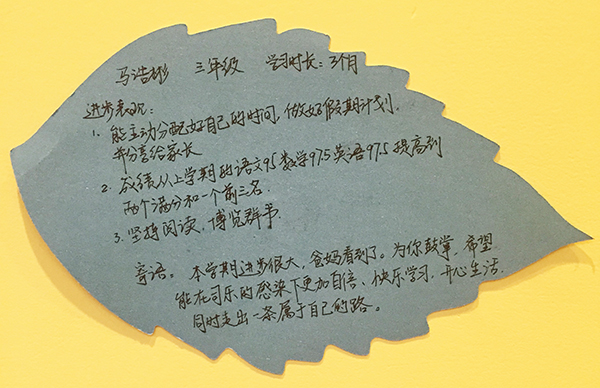 马浩彬 三年级 学习时长:3个月
进步表现:
1. 能主动分配好自己的时间,做好假期计划,
并分享给家长
2. 成绩从上学期的语文95 数学97.5 英语97.5 提高到
两个满分和一个前三名.
3. 坚持阅读,博览群书.
寄语。本学期进步很大,爸妈看到了。为你鼓掌,希望
能在可乐的感染下更加自信、快乐学习,开心生活.
同时走出一条属于自己的路。